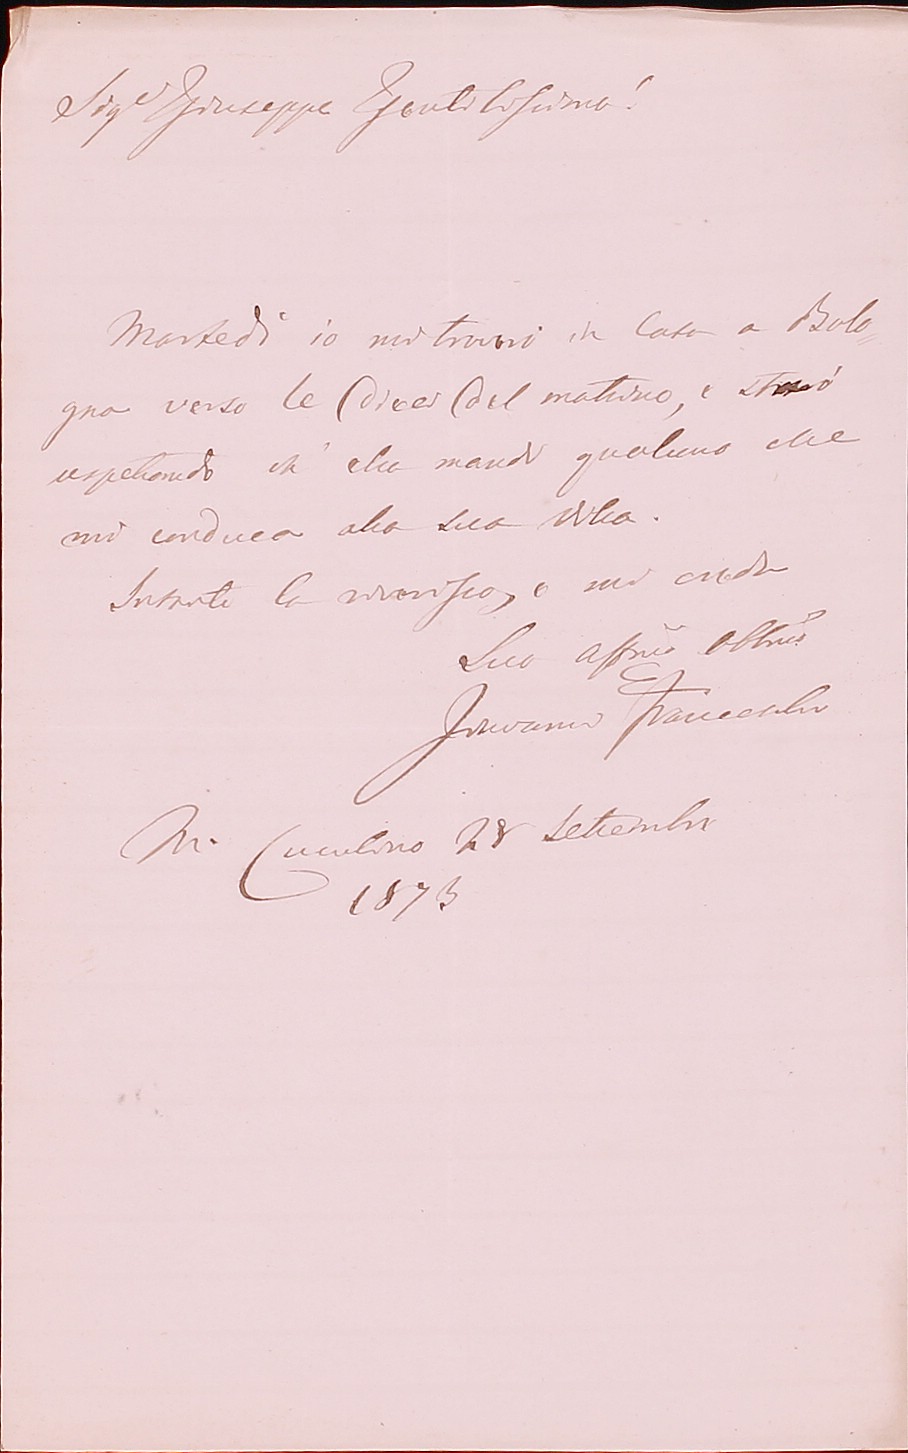 Sigr Giuseppe Gentilissimo!
Martedì io mi troverò in Casa a Bolo=
gna verso le dieci del mattino, e starò
aspettando ch' ella mandi qualcuno che
mi conduca alla sua villa.
Intanto la riverisco, e mi creda
Suo affmo obbmo
Giovanni Franceschi
M. Cuculino 28 settembre
1873